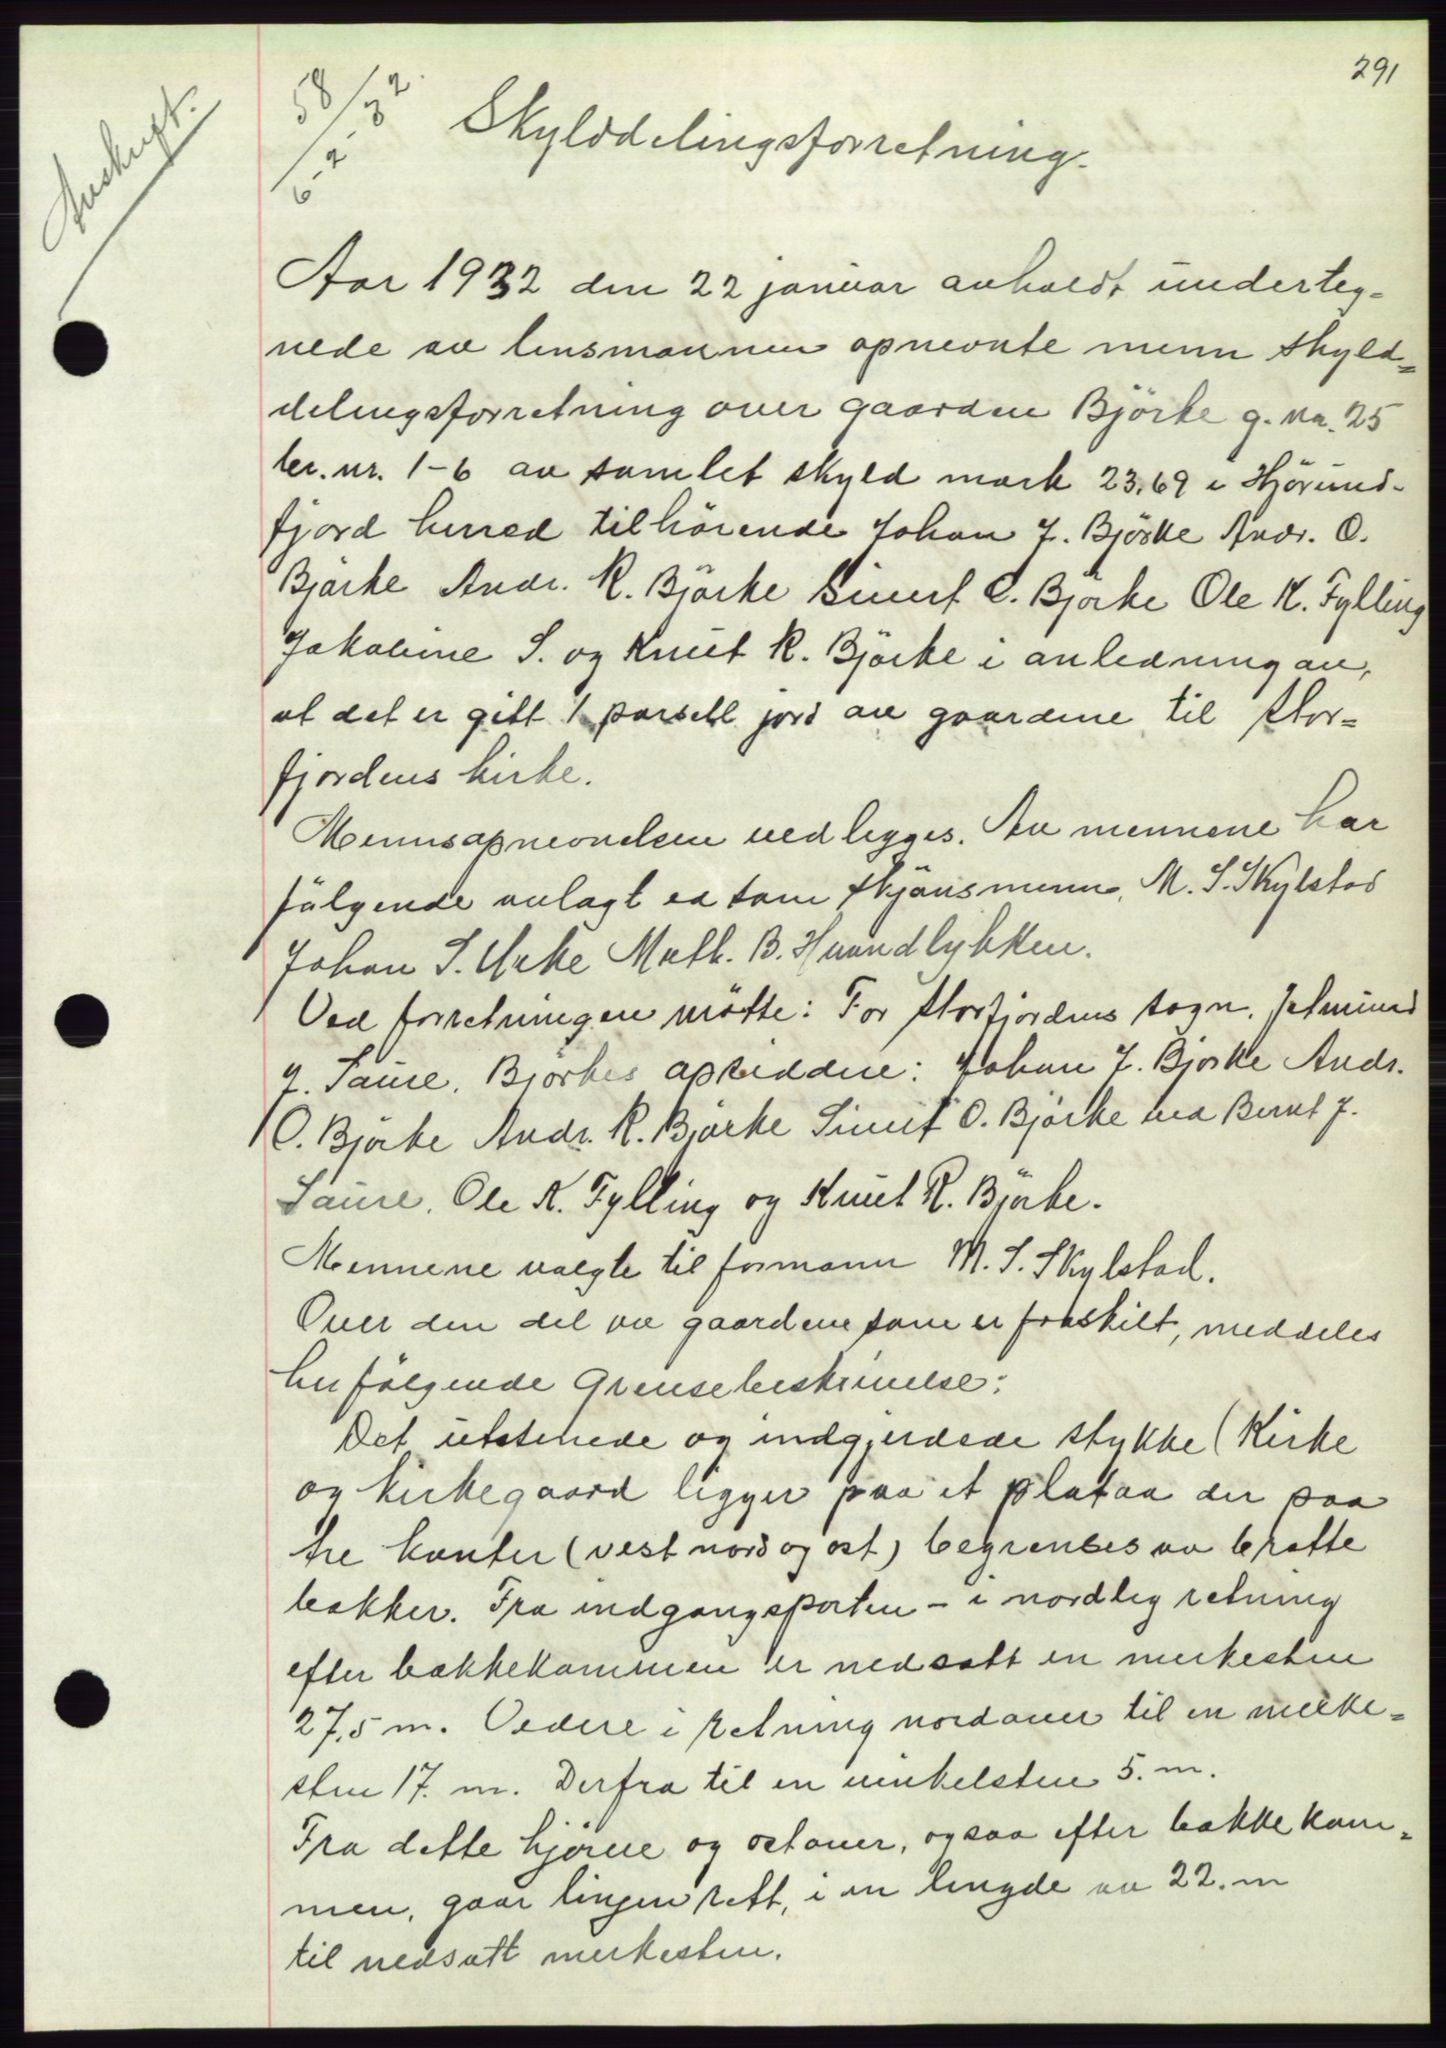 291
Avskrift.
58/6-2-32
Skylddelingsforretning.
Aar 1932 den 22 januar avholdt underteg=
nede av lensmannen opnevnte menn skyld=
delingsforretning over gaarden Björke g. nr. 25
br. nr. 1-6 av samlet skyld mark 23,69 i Hjörund-
fjord herred tilhörende Johan J. Björke Andr. O.
Björke Andr. R. Björke Sivert O. Björke Ole K. Fylling
Jakobine S. og Knut R. Björke i anledning av,
at det er gitt 1 parsell jord av gaardene til Stor=
fjordens kirke.
Mennsopnevnelsen vedlegges. Av mennene har
fölgende avlagt ed som skjönsmenn, M. S. Skylstad
Johan S. Urke Math. B. Haandlykken.
Ved forretningen mötte: For Storfjordens sogn. Jetmund
J. Saure. Björkes opsiddere: Johan J. Björke Andr.
O. Björke Andr. R. Björke Sivert O. Björke ved Bernt J.
Saure. Ole K. Fylling og Knut R. Björke.
Mennene valgte til formann M. S. Skylstad.
Over den del av gaardene som er fraskilt, meddeles
her fölgende Grensebeskrivelse:
Det utstenede og indgjerdede stykke (Kirke
og kirkegaard ligger paa et plataa der paa
tre kanter (vest nord og ost) begrenses av bratte
bakker. Fra indgangsporten - i nordlig retning
efter bakkekammen er nedsatt en merkesten
27,5 m. Videre i retning nordover til en merke=
sten 17. m. Derfra til en vinkelsten 5. m.
Fra dette hjörne og ostover, ogsaa efter bakkekam=
men, gaar linjen rett, i en lengde av 22. m
til nedsatt merkesten.